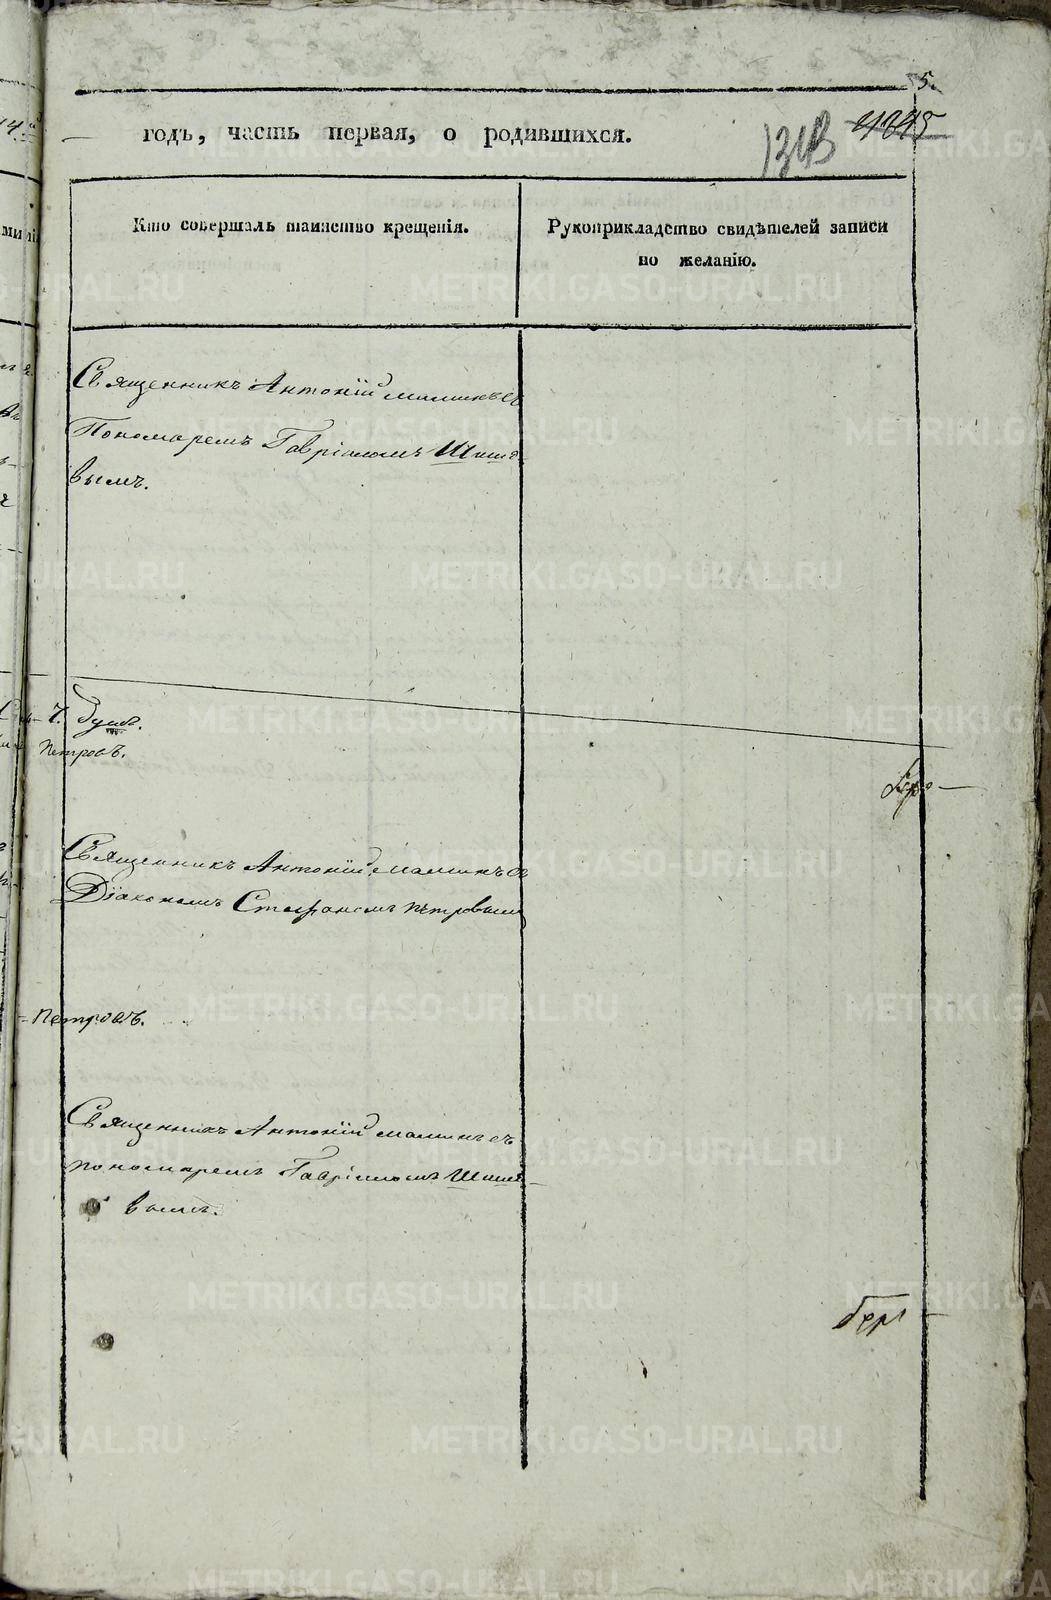 5.
годъ, часть первая, о родившихся.
Кто совершалъ таинство крещенія.
Рукоприкладство свидѣтелей записи
по желанію.
Священникъ Антоній Маминъ съ
Пономаремъ Гавріиломъ Шише
вымъ.
Петровъ.
Священникъ Антоній Маминъ съ
Діакономъ Стефаномъ Петровымъ
Петровъ.
Священникъ Антоній Маминъ съ
пономаремъ Гавріиломъ Шише-
вымъ.
METRIKI.GASO-URAL.RU